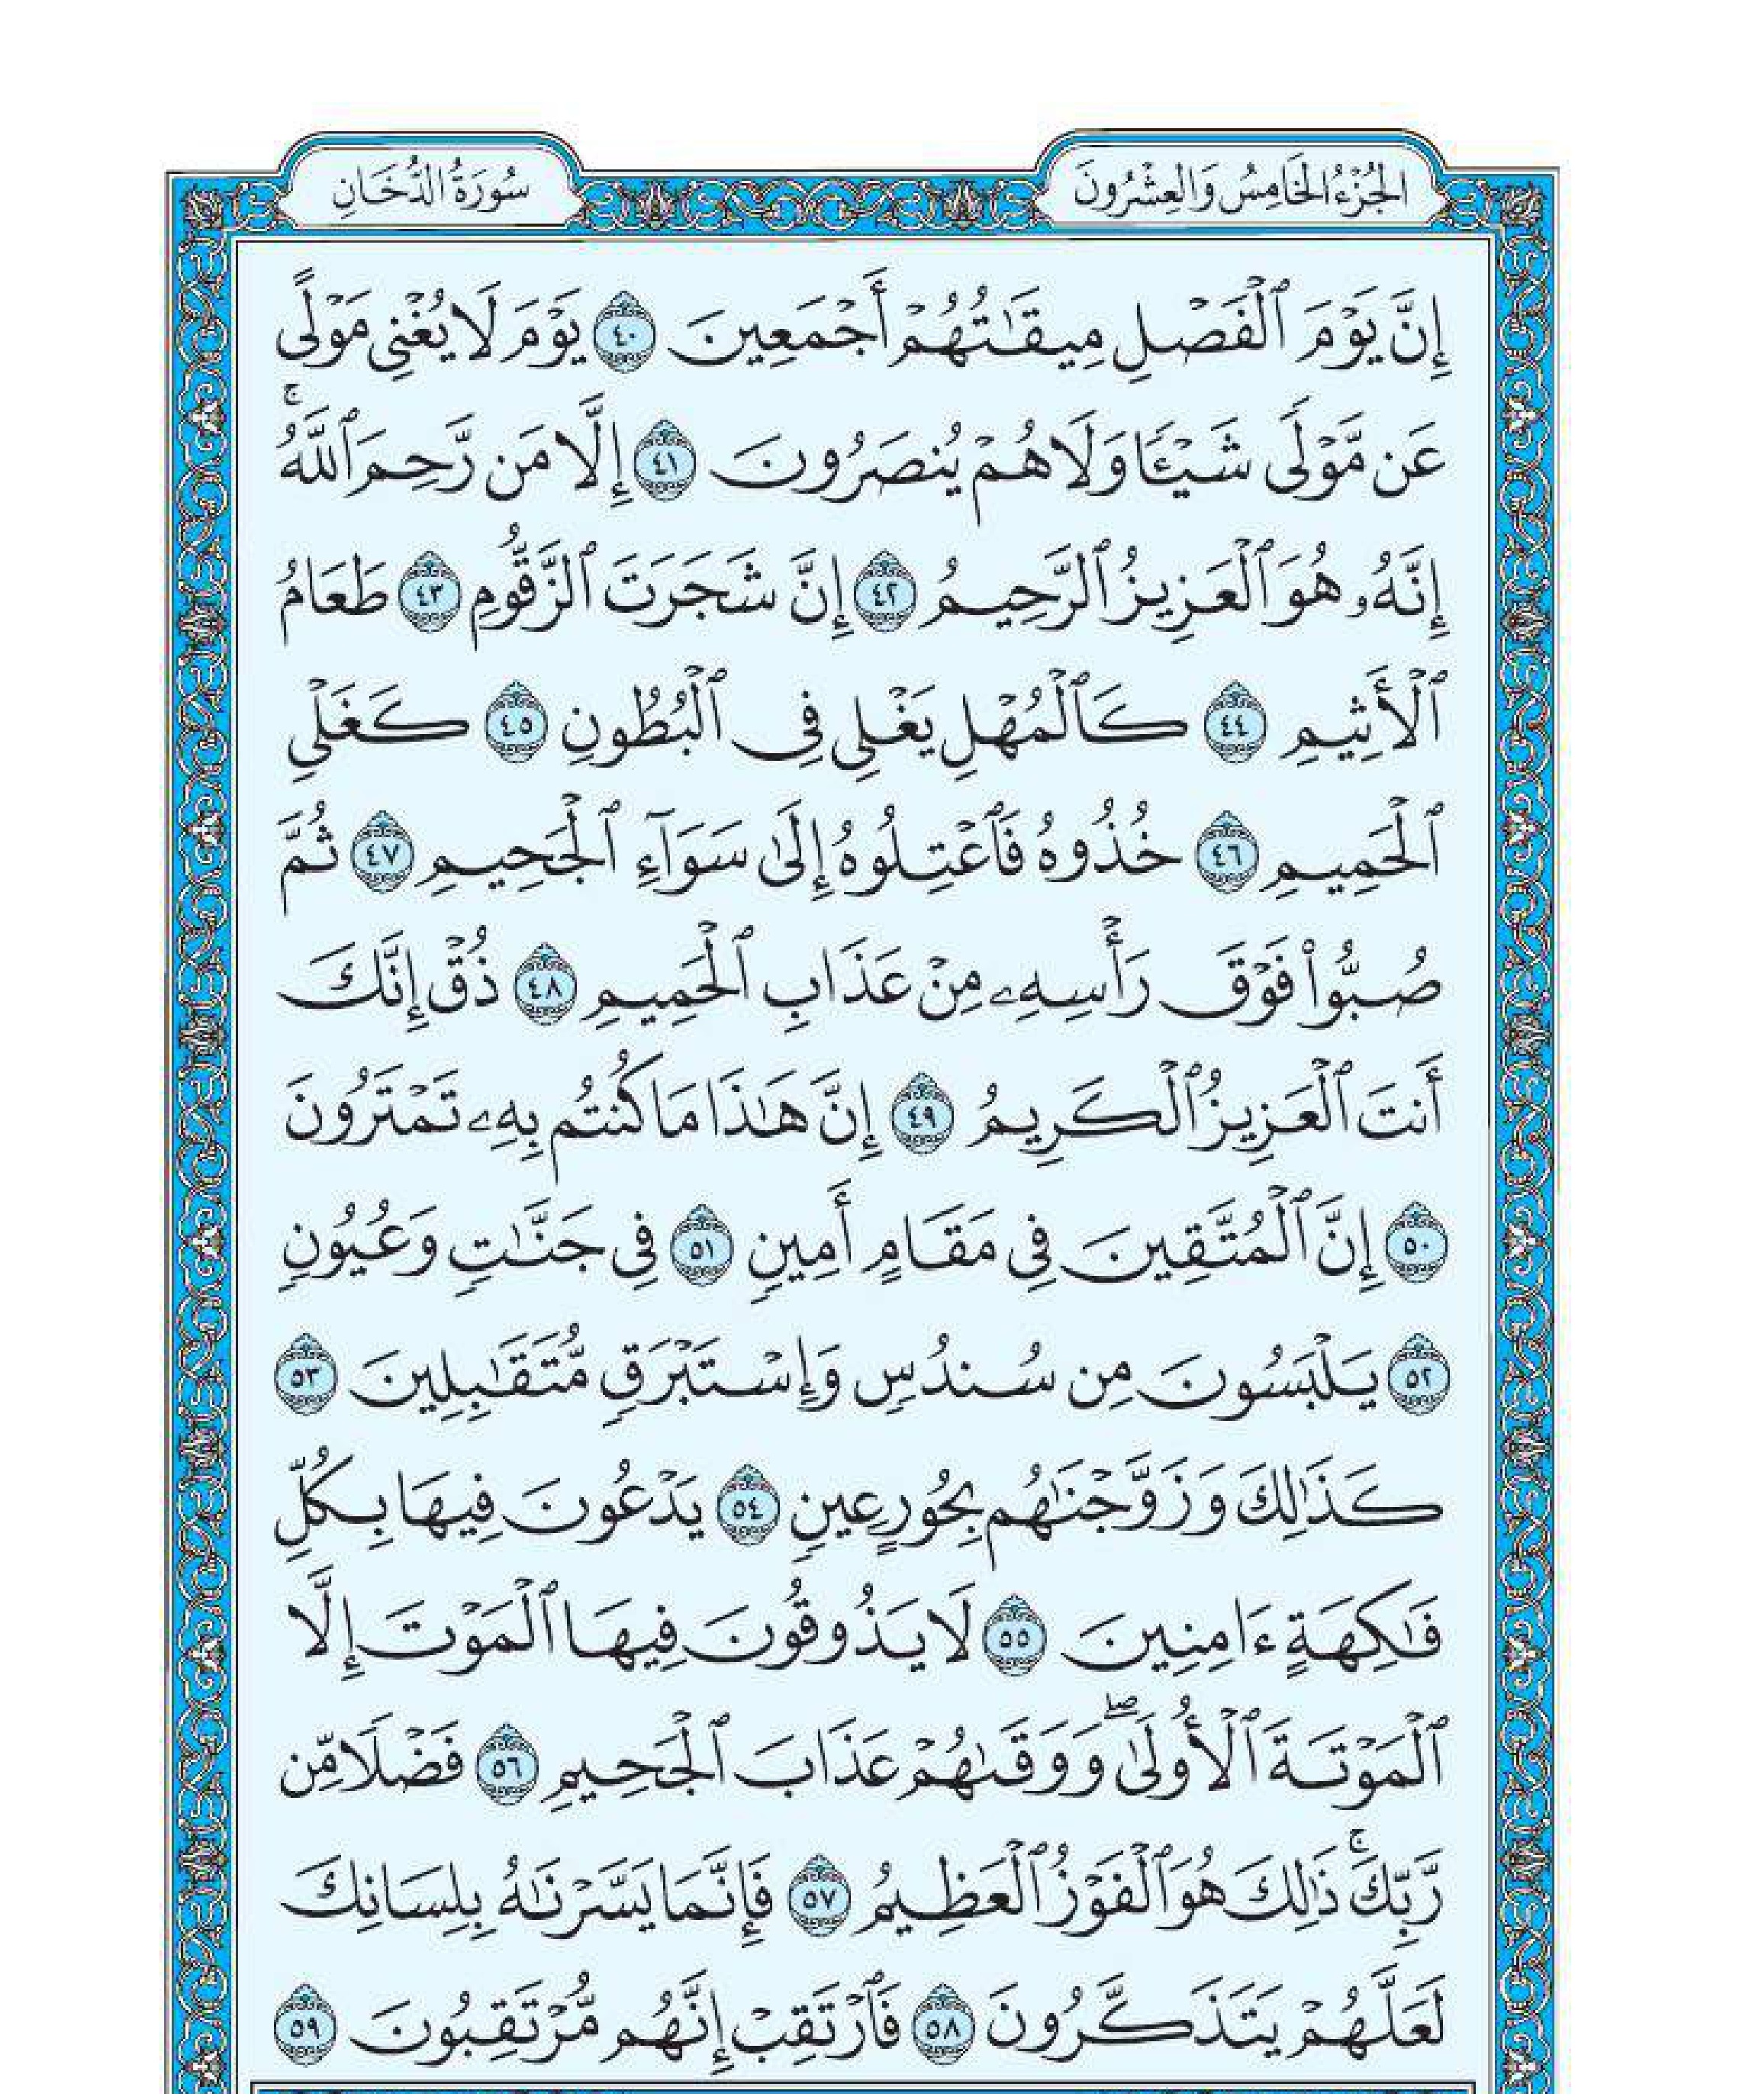 الجُزْءُ الخَامِسُ وَالعِشْرُونَ
سُورَةُ الدُّخَانِ
إِنَّ يَوْمَ ٱلْفَصْلِ مِيقَـٰتُهُمْ أَجْمَعِينَ ٤٠ يَوْمَ لَا يُغْنِى مَوْلًى
عَن مَّوْلًى شَيْـًٔا وَلَا هُمْ يُنصَرُونَ ٤١ إِلَّا مَن رَّحِمَ ٱللَّهُ ۚ
إِنَّهُۥ هُوَ ٱلْعَزِيزُ ٱلرَّحِيمُ ٤٢ إِنَّ شَجَرَتَ ٱلزَّقُّومِ ٤٣ طَعَامُ
ٱلْأَثِيمِ ٤٤ كَٱلْمُهْلِ يَغْلِى فِى ٱلْبُطُونِ ٤٥ كَغَلْىِ
ٱلْحَمِيمِ ٤٦ خُذُوهُ فَٱعْتِلُوهُ إِلَىٰ سَوَآءِ ٱلْجَحِيمِ ٤٧ ثُمَّ
صُبُّوا۟ فَوْقَ رَأْسِهِۦ مِنْ عَذَابِ ٱلْحَمِيمِ ٤٨ ذُقْ إِنَّكَ
أَنتَ ٱلْعَزِيزُ ٱلْكَرِيمُ ٤٩ إِنَّ هَـٰذَا مَا كُنتُم بِهِۦ تَمْتَرُونَ
٥٠ إِنَّ ٱلْمُتَّقِينَ فِى مَقَامٍ أَمِينٍ ٥١ فِى جَنَّـٰتٍ وَعُيُونٍ
٥٢ يَلْبَسُونَ مِن سُندُسٍ وَإِسْتَبْرَقٍ مُّتَقَـٰبِلِينَ ٥٣
كَذَٰلِكَ وَزَوَّجْنَـٰهُم بِحُورٍ عِينٍ ٥٤ يَدْعُونَ فِيهَا بِكُلِّ
فَـٰكِهَةٍ ءَامِنِينَ ٥٥ لَا يَذُوقُونَ فِيهَا ٱلْمَوْتَ إِلَّا
ٱلْمَوْتَةَ ٱلْأُولَىٰ ۖ وَوَقَىٰهُمْ عَذَابَ ٱلْجَحِيمِ ٥٦ فَضْلًا مِّن
رَّبِّكَ ۚ ذَٰلِكَ هُوَ ٱلْفَوْزُ ٱلْعَظِيمُ ٥٧ فَإِنَّمَا يَسَّرْنَـٰهُ بِلِسَانِكَ
لَعَلَّهُمْ يَتَذَكَّرُونَ ٥٨ فَٱرْتَقِبْ إِنَّهُم مُّرْتَقِبُونَ ٥٩